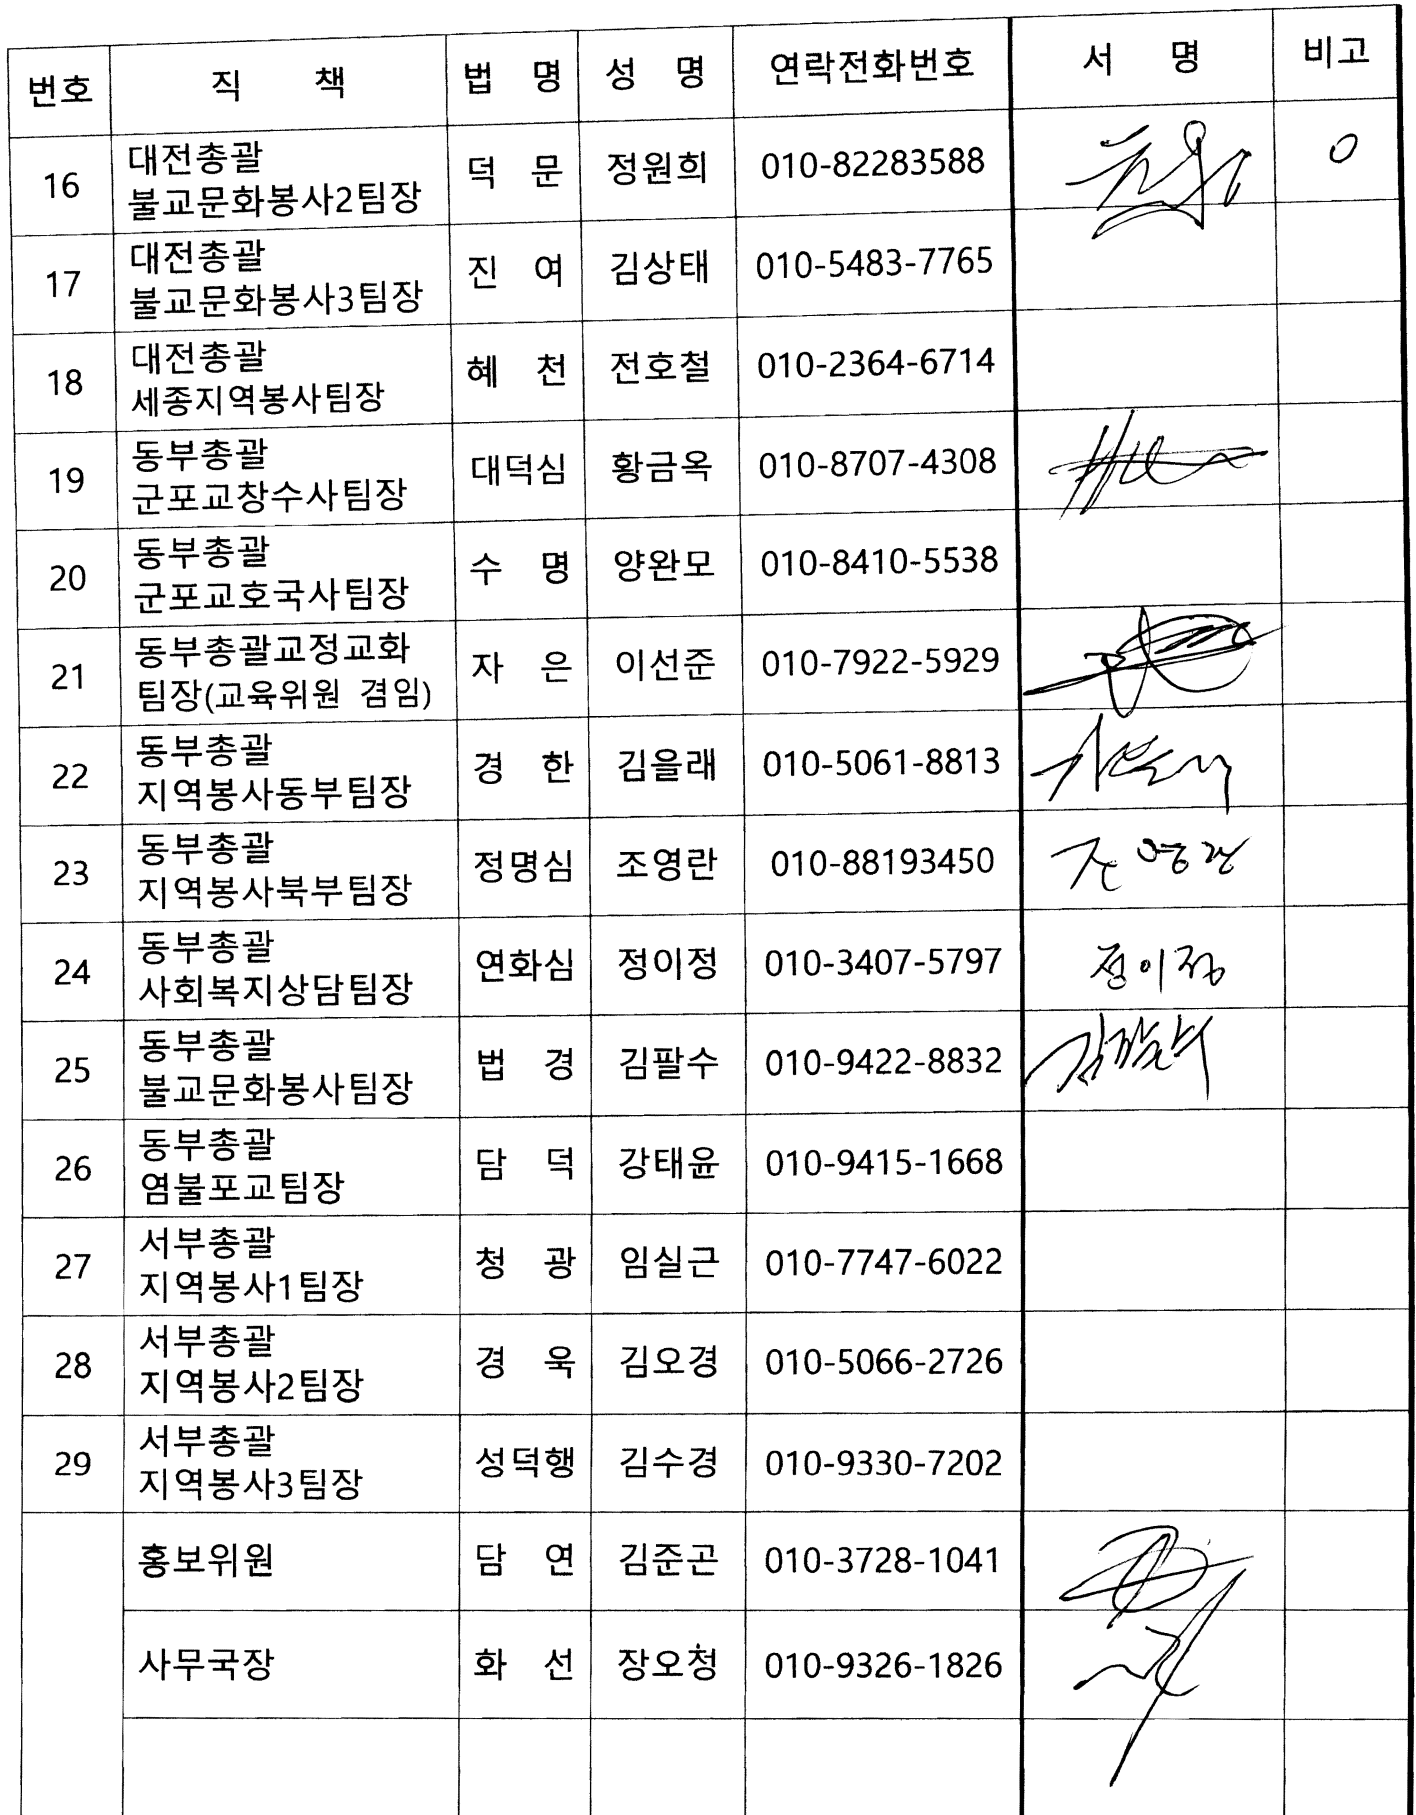 번호 직 책 법 명 성 명 연락전화번호 서 명 비고
대전총괄
16 불교문화봉사2팀장 덕 문 정원희 010-82283588 O
대전총괄
17 불교문화봉사3팀장 진 여 김상태 010-5483-7765
대전총괄
18 세종지역봉사팀장 혜 천 전호철 010-2364-6714
동부총괄
19 군포교창수사팀장 대덕심 황금옥 010-8707-4308
동부총괄
20 군포교호국사팀장 수 명 양완모 010-8410-5538
동부총괄교정교화
21 팀장(교육위원 겸임) 자 은 이선준 010-7922-5929
동부총괄
22 지역봉사동부팀장 경 한 김을래 010-5061-8813
동부총괄
23 지역봉사북부팀장 정명심 조영란 010-88193450 조영란
동부총괄
24 사회복지상담팀장 연화심 정이정 010-3407-5797 정이정
동부총괄
25 불교문화봉사팀장 법 경 김팔수 010-9422-8832 김팔수
동부총괄
26 염불포교팀장 담 덕 강태윤 010-9415-1668
서부총괄
27 지역봉사1팀장 청 광 임실근 010-7747-6022
서부총괄
28 지역봉사2팀장 경 욱 김오경 010-5066-2726
서부총괄
29 지역봉사3팀장 성덕행 김수경 010-9330-7202
홍보위원 담 연 김준곤 010-3728-1041
사무국장 화 선 장오청 010-9326-1826